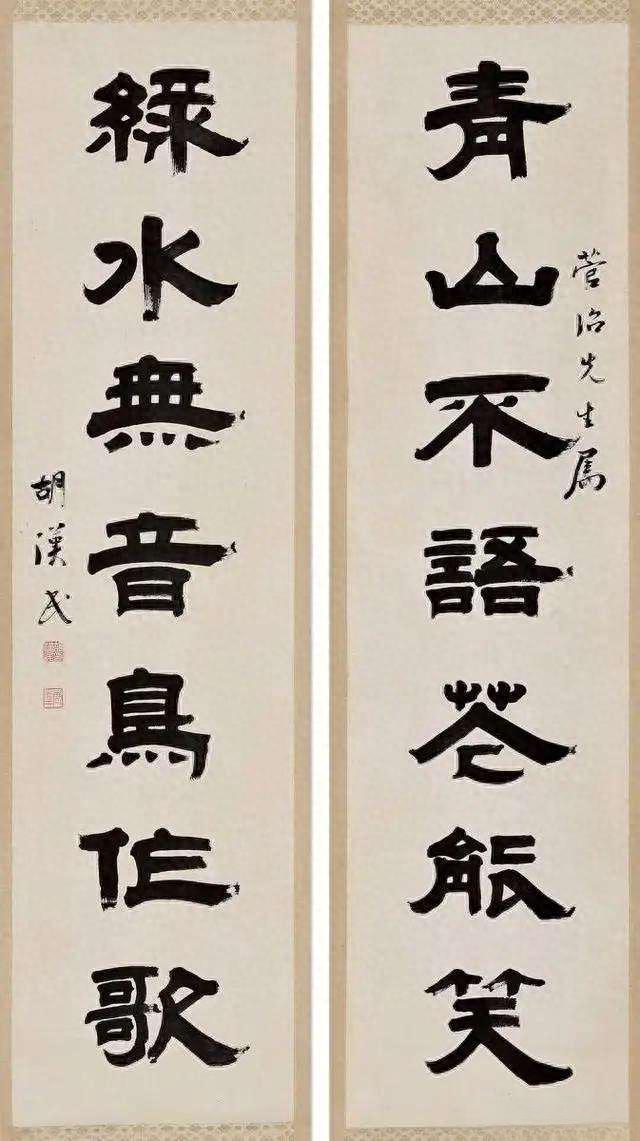 青山不語花能笑
先生属
綠水無音鳥作歌
胡漢民